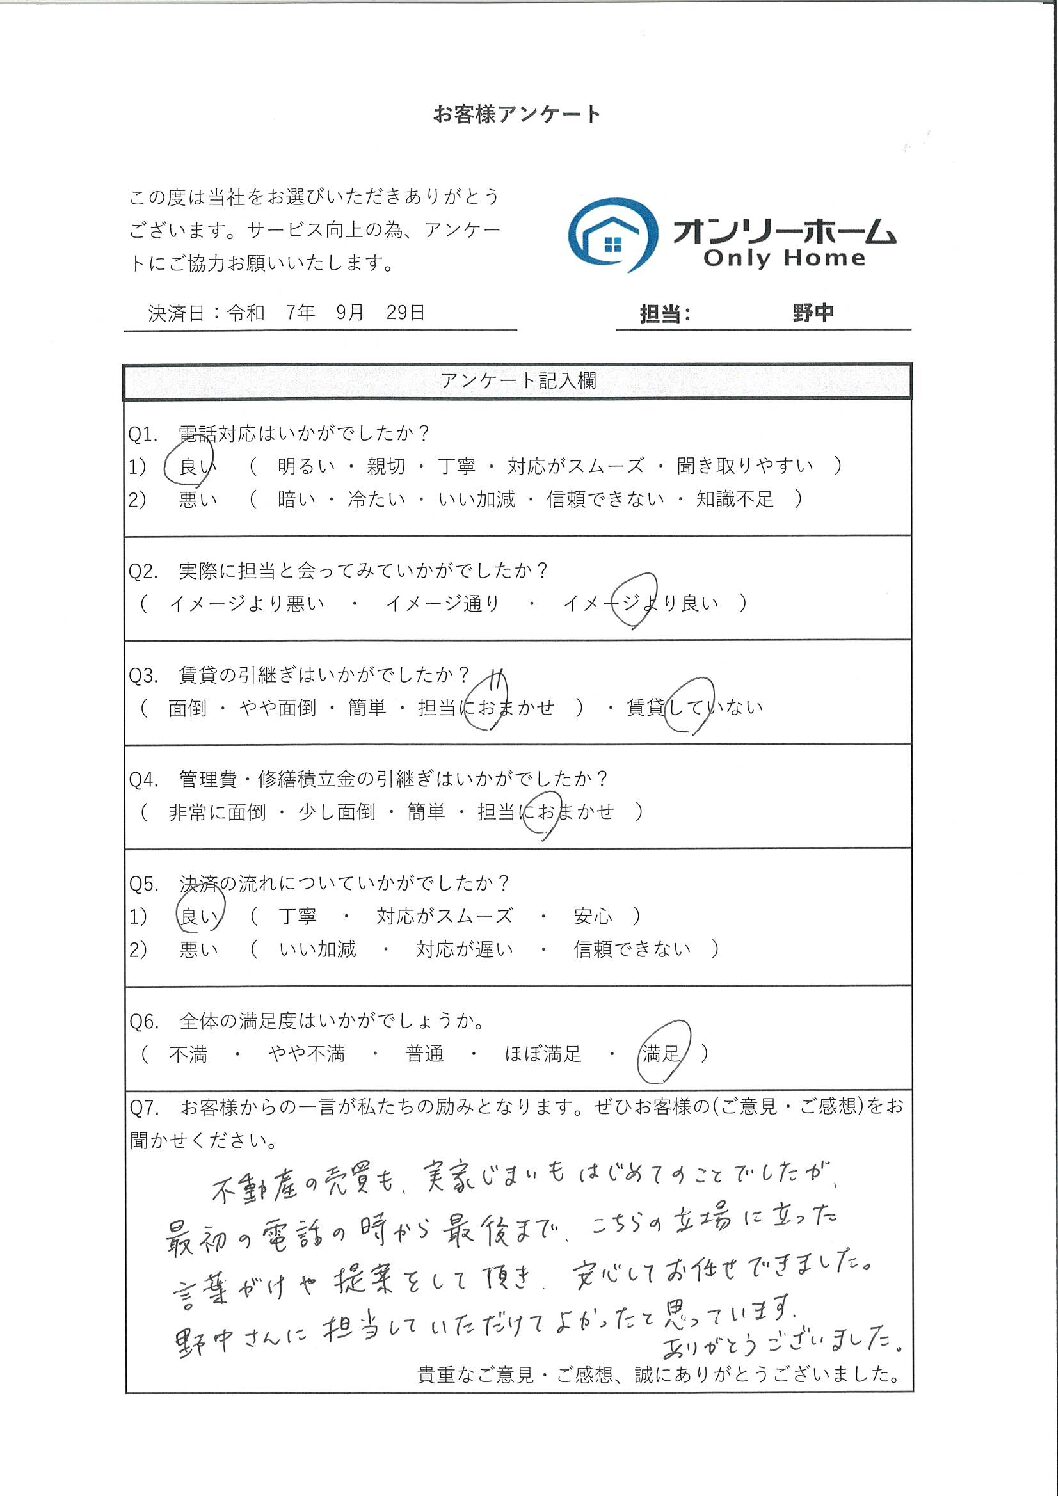 お客様アンケート
この度は当社をお選びいただきありがとう
ございます。サービス向上の為、アンケー
トにご協力お願いいたします。
オンリーホーム
Only Home
決済日：令和　7年　9月　29日
担当:　野中
アンケート記入欄
Q1.　電話対応はいかがでしたか？
1)　良い　（　明るい ・ 親切 ・ 丁寧 ・ 対応がスムーズ ・ 聞き取りやすい　）
2)　悪い　（　暗い ・ 冷たい ・ いい加減 ・ 信頼できない ・ 知識不足　）
Q2.　実際に担当と会ってみていかがでしたか？
（　イメージより悪い　・　イメージ通り　・　イメージより良い　）
Q3.　賃貸の引継ぎはいかがでしたか？
（　面倒 ・ やや面倒 ・ 簡単 ・ 担当におまかせ　）・ 賃貸していない
Q4.　管理費・修繕積立金の引継ぎはいかがでしたか？
（　非常に面倒 ・ 少し面倒 ・ 簡単 ・ 担当におまかせ　）
Q5.　決済の流れについていかがでしたか？
1)　良い　（　丁寧　・　対応がスムーズ　・　安心　）
2)　悪い　（　いい加減　・　対応が遅い　・　信頼できない　）
Q6.　全体の満足度はいかがでしょうか。
（　不満　・　やや不満　・　普通　・　ほぼ満足　・　満足　）
Q7.　お客様からの一言が私たちの励みとなります。ぜひお客様の(ご意見・ご感想)をお
聞かせください。
不動産の売買も、実家じまいもはじめてのことでしたが、
最初の電話の時から最後まで、こちらの立場に立った
言葉がけや提案をして頂き、安心してお任せできました。
野中さんに担当していただけてよかったと思っています。
ありがとうございました。
貴重なご意見・ご感想、誠にありがとうございました。